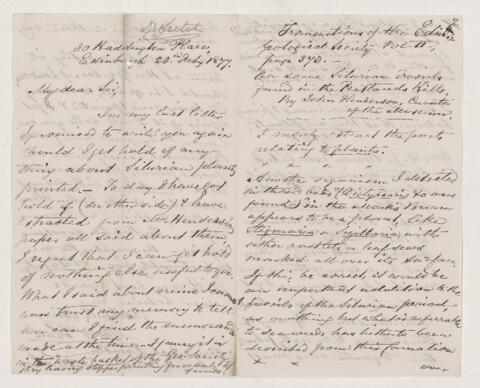 30 Haddington Place,
Edinburgh 23rd Feby 1877.
My dear Sir,
In my last letter
I promised to write you again
should I get hold of any
thing about Silurian plants
printed. — To day I have got
hold of (see other side) & have
extracted from Mr Henderson's
paper all said about them
I regret that I can get hold
of nothing else useful to you.
What I said about mine I cannot
trust my memory to tell
in case I found the
made at the time I fancy it is
in the waste basket of the Geo. Society
they having stopped printing for want of
funds
Transactions of the Edinr
Geological Society Vol II.
page 373.
On some Silurian Fossils
found in the Pentland Hills.
By John Henderson, Curator
of the Museum.
I merely extract the parts
relating to plants.
x x
Another organism I detected
in these beds (Dictyocaris &c was
found) in the
appears to be a plant, like
Stigmaria or Sigillaria, with
either rootlets or leaf scars
marked all over its surface.
If this be correct, it would be
an important addition to the
fossils of the Silurian period,
as nothing but what is referrable
to sea weeds has hitherto been
described from this formation
x x
over